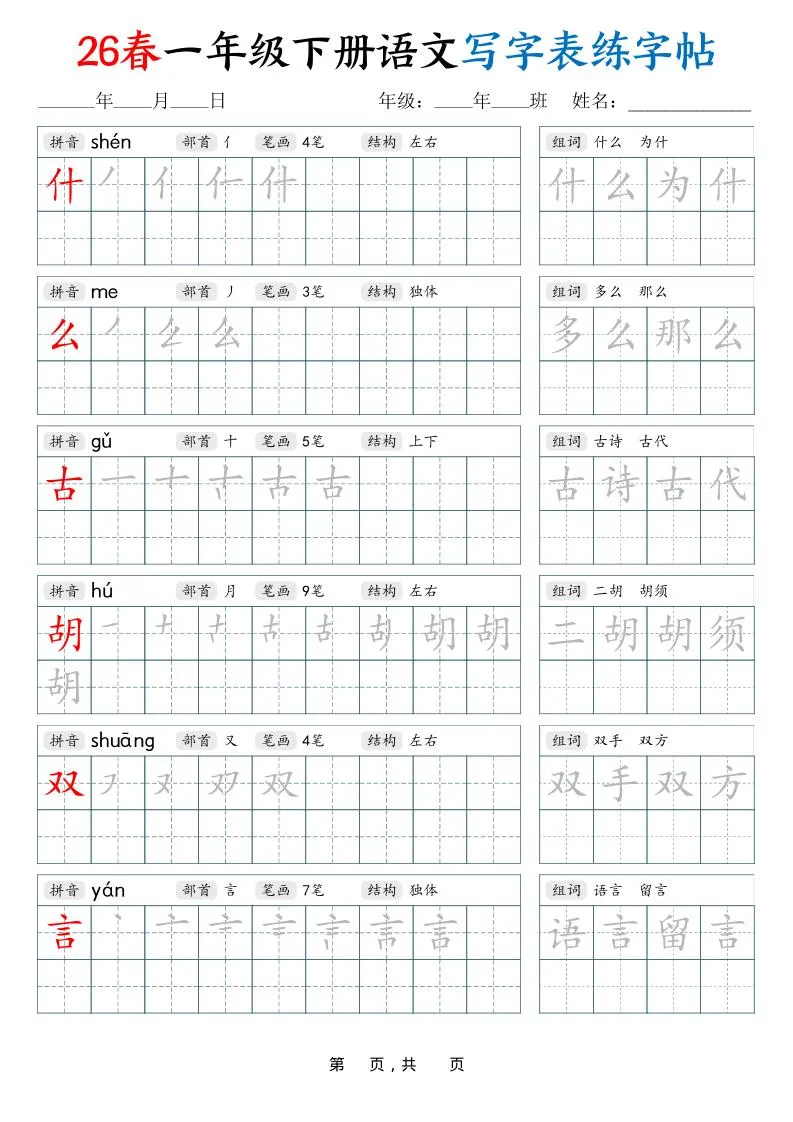 26春一年级下册语文写字表练字帖
______年____月____日 年级：____年____班 姓名：_____________
拼音 shén 部首 亻 笔画 4笔 结构 左右 组词 什么 为什
什 丿 亻 仁 什 什 么 为 什
拼音 me 部首 丿 笔画 3笔 结构 独体 组词 多么 那么
么 丿 么 么 多 么 那 么
拼音 gǔ 部首 十 笔画 5笔 结构 上下 组词 古诗 古代
古 一 十 古 古 古 诗 古 代
拼音 hú 部首 月 笔画 9笔 结构 左右 组词 二胡 胡须
胡 一 十 古 古 胡 胡 二 胡 胡 须
胡
拼音 shuāng 部首 又 笔画 4笔 结构 左右 组词 双手 双方
双 又 双 双 手 双 方
拼音 yán 部首 言 笔画 7笔 结构 独体 组词 语言 留言
言 丶 亠 言 言 语 言 留 言
第 页，共 页